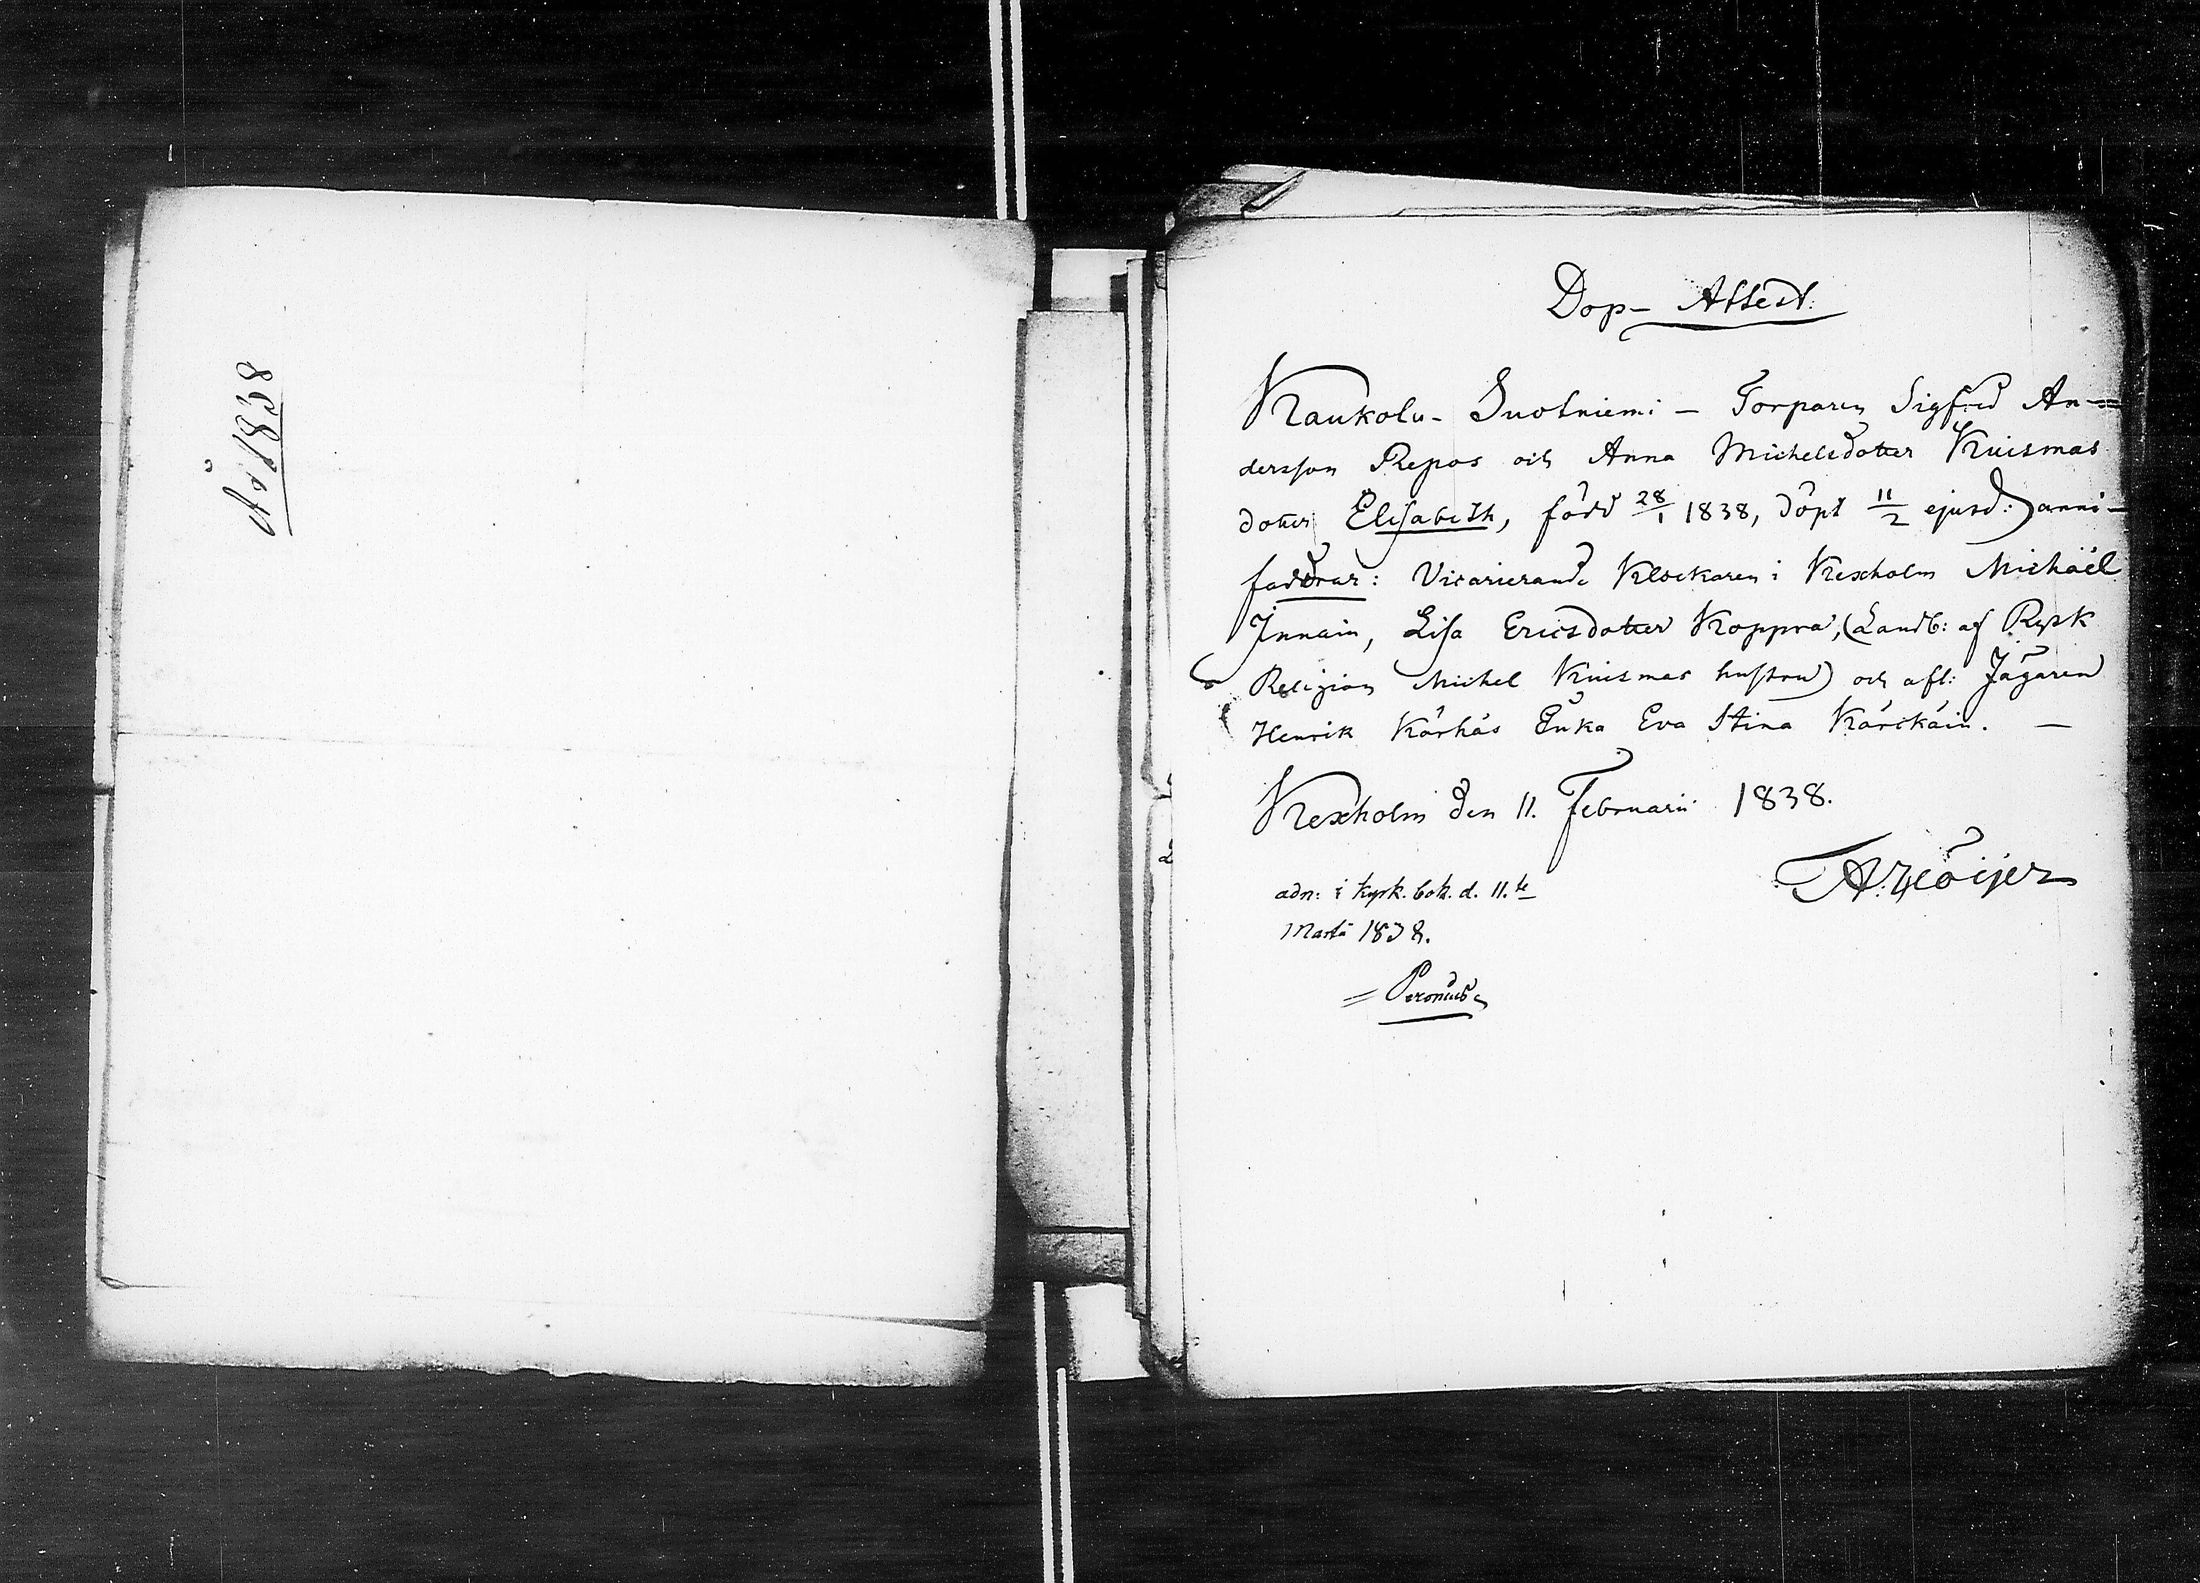 År 1838
Dop- Attest.
Kaukola- Suotniemi - Torparen Sigfrid An=
dersson Repos och Anna Michelsdotter Kuismas
dotter Elisabeth, född 28/1 1838, döpt 11/2 ejusd: anni-
faddrar: Vicarierande Klockaren i Kexholm Michaël
Innain, Lisa Ericsdotter Koppra, (Landb: af Rysk
Religion Michel Kuismas hustru) och afl: Jägaren
Henrik Kärhäs Enka Eva Stina Kärckäin. -
Kexholm den 11. Februarii 1838.
adn: i kyrk. bok. d. 11.te
Martii 1838.